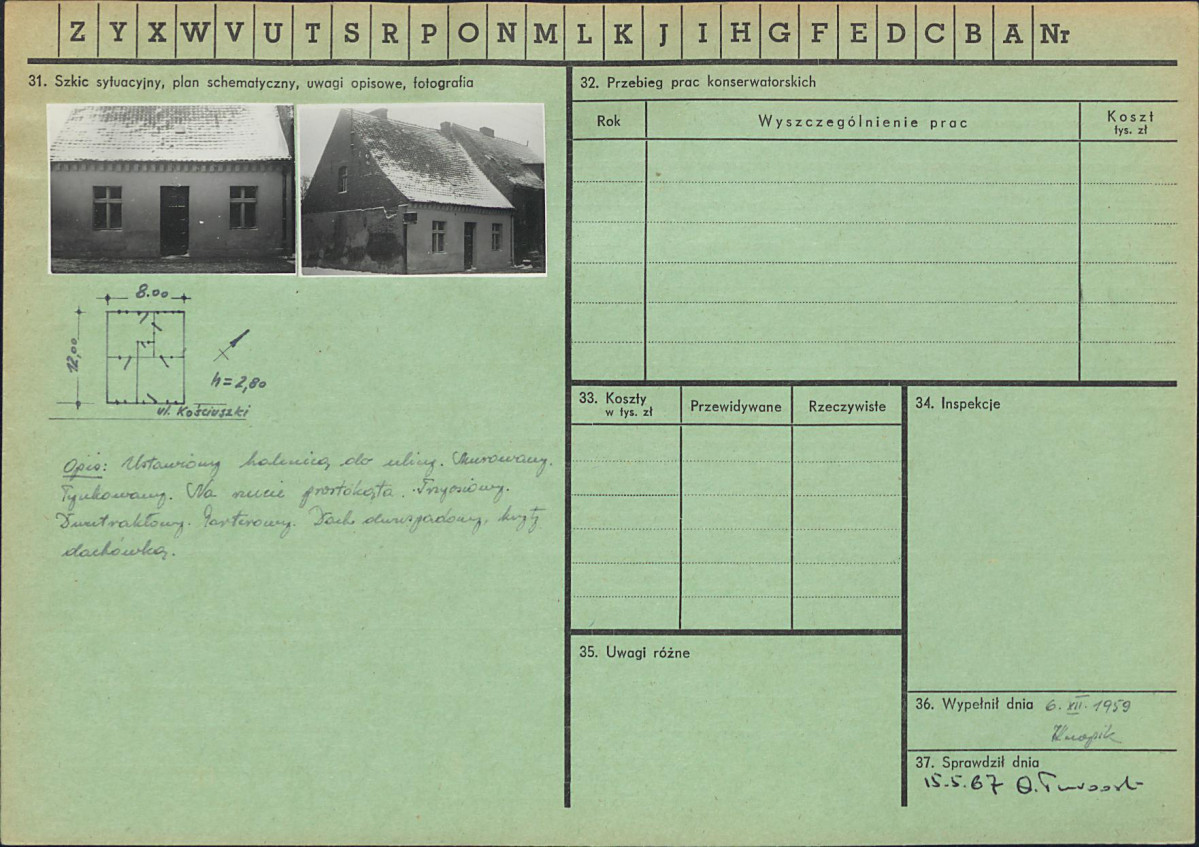 Z Y X W V U T S R P O N M L K J I H G F E D C B A Nr
31. Szkic sytuacyjny, plan schematyczny, uwagi opisowe, fotografia
8.00
12,00
h=2,80
ul. Kościuszki
Opis: Ustawiony kalenicą do ulicy. Murowany.
Tynkowany. Na rzucie prostokąta. Trzyosiowy.
Dwutraktowy. Parterowy. Dach dwuspadowy, kryty
dachówką.
32. Przebieg prac konserwatorskich
Rok
Wyszczególnienie prac
Koszt
tys. zł
33. Koszty
w tys. zł
Przewidywane
Rzeczywiste
34. Inspekcje
35. Uwagi różne
36. Wypełnił dnia 6. XII. 1959
37. Sprawdził dnia
15.5.67